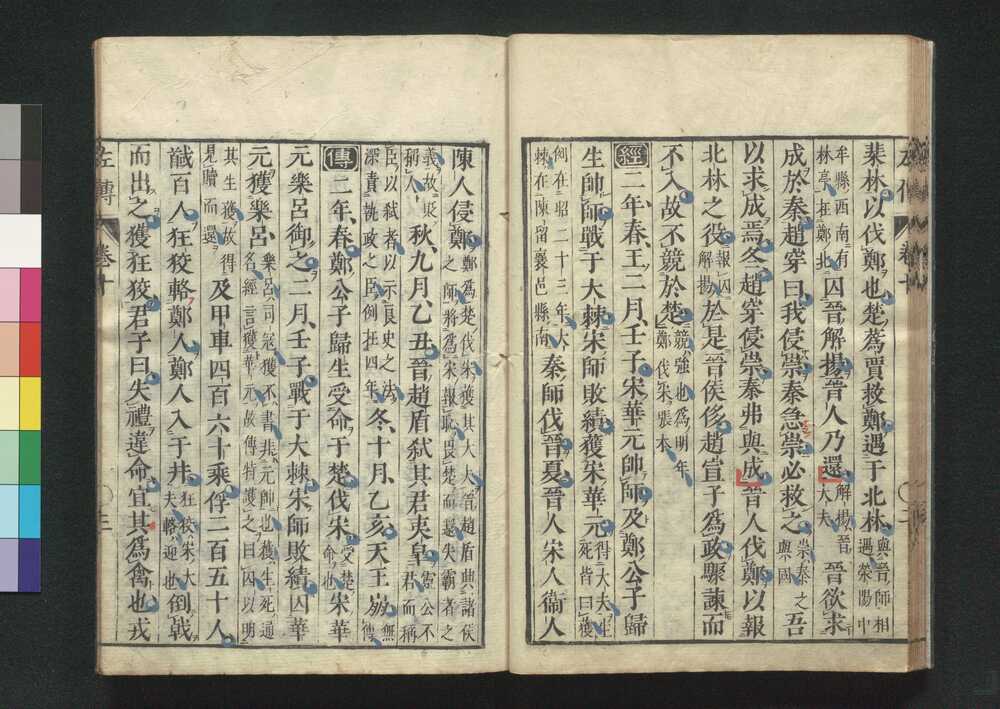 棐林以伐鄭也楚蔿賈救鄭遇于北林與晉師相遇滎陽中
牟縣西南有林亭在鄭北囚晉解揚晉人乃還解揚晉大夫晉欲求
成於秦趙穿曰我侵崇秦急崇必救之崇秦之與國吾
以求成焉冬趙穿侵崇秦弗與成晉人伐鄭以報
北林之役報囚解揚於是晉侯侈趙宣子爲政驟諫而
不入故不競於楚競強也爲明年鄭伐宋張本
經二年春王二月壬子宋華元帥師及鄭公子歸
生帥師戰于大棘宋師敗績獲宋華元得大夫生死皆曰獲
例在昭二十三年大棘在陳留襄邑縣南秦師伐晉夏晉人宋人衞人
陳人侵鄭鄭爲楚伐宋獲其大夫晉趙盾興諸侯之師將爲宋報恥畏楚而還失霸者之
義故貶稱人秋九月乙丑晉趙盾弑其君夷皐靈公不君而稱
臣以弑者以示良史之法深責執政之臣例在四年冬十月乙亥天王崩無傳
傳二年春鄭公子歸生受命于楚伐宋受楚命也宋華
元樂呂御之二月壬子戰于大棘宋師敗績囚華
元獲樂呂樂呂司寇獲不書非元帥也獲生死通名經言獲華元故傳特護之曰囚以明
其生獲故得見贖而還及甲車四百六十乘俘二百五十人
馘百人狂狡輅鄭人鄭人入于井狂狡宋大夫輅迎也倒戟
而出之獲狂狡君子曰失禮違命宜其爲禽也戎
左傳 卷十 三